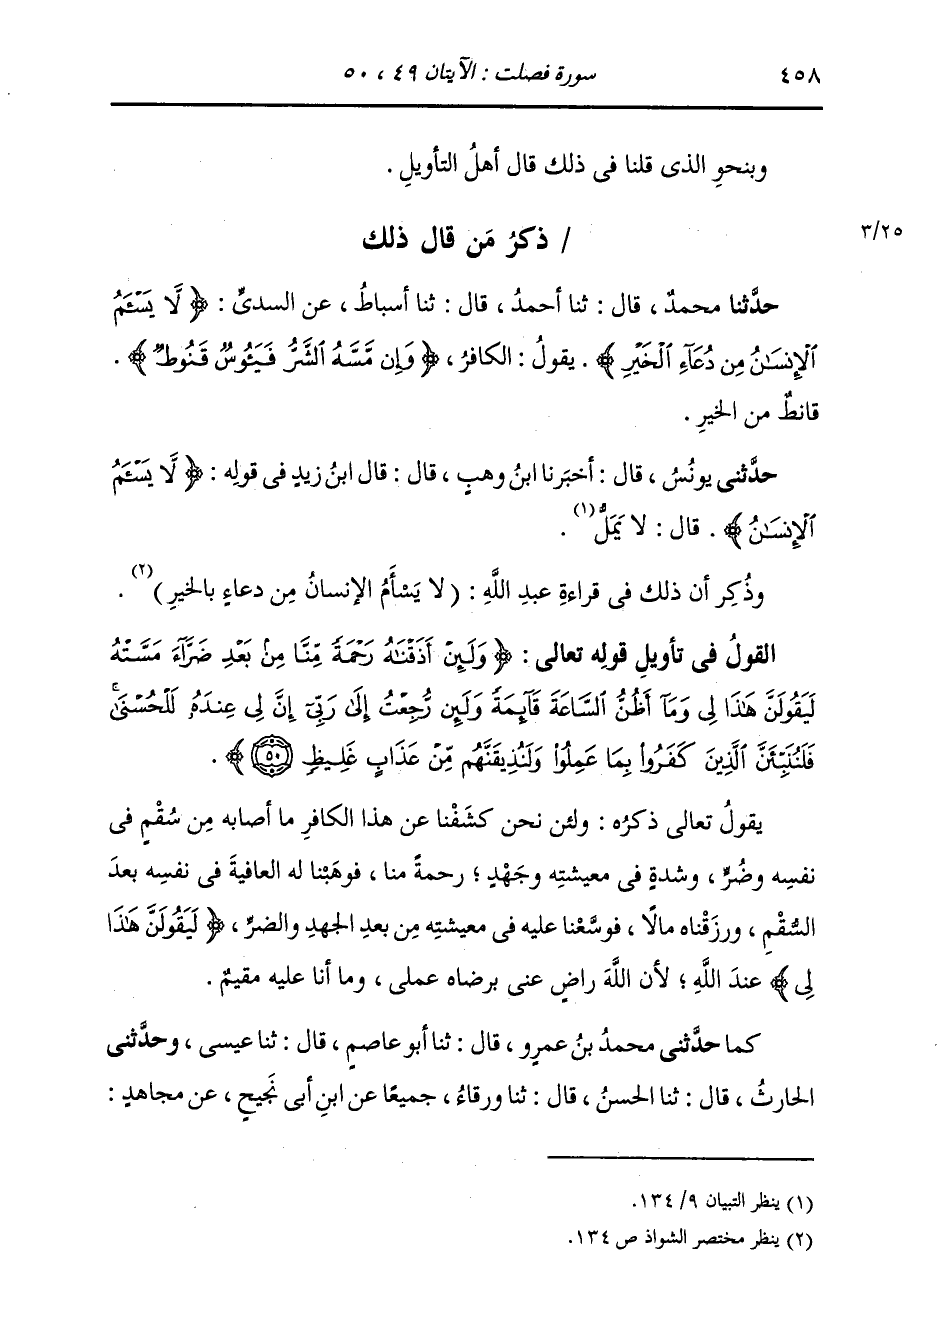 ٤٥٨ سورة فصلت : الآيتان ٤٩ ، ٥٠
وبنحوِ الذى قلنا فى ذلك قال أهلُ التأويلِ .
٣/٢٥ / ذكرُ مَن قال ذلك
حدَّثنا محمدٌ ، قال : ثنا أحمدُ ، قال : ثنا أسباطُ ، عن السدىِّ : ﴿ لَّا يَسْـَٔمُ
ٱلْإِنسَـٰنُ مِن دُعَآءِ ٱلْخَيْرِ ﴾ . يقولُ : الكافرُ ، ﴿ وَإِن مَّسَّهُ ٱلشَّرُّ فَيَـُٔوسٌ قَنُوطٌ ﴾ .
قانطٌ من الخيرِ .
حدَّثنى يونُسُ ، قال : أخبَرنا ابنُ وهبٍ ، قال : قال ابنُ زيدٍ فى قولِه : ﴿ لَّا يَسْـَٔمُ
ٱلْإِنسَـٰنُ ﴾ . قال : لا يَمَلُّ(١) .
وذُكِر أن ذلك فى قراءةِ عبدِ اللَّهِ : ( لا يَسْأَمُ الإنسانُ مِن دعاءٍ بالخيرِ )(٢) .
القولُ فى تأويلِ قولِه تعالى : ﴿ وَلَئِنْ أَذَقْنَـٰهُ رَحْمَةً مِّنَّا مِنۢ بَعْدِ ضَرَّآءَ مَسَّتْهُ
لَيَقُولَنَّ هَـٰذَا لِى وَمَآ أَظُنُّ ٱلسَّاعَةَ قَآئِمَةً وَلَئِن رُّجِعْتُ إِلَىٰ رَبِّىٓ إِنَّ لِى عِندَهُۥ لَلْحُسْنَىٰ ۚ
فَلَنُنَبِّئَنَّ ٱلَّذِينَ كَفَرُوا۟ بِمَا عَمِلُوا۟ وَلَنُذِيقَنَّهُم مِّنْ عَذَابٍ غَلِيظٍ ٥٠ ﴾ .
يقولُ تعالى ذكرُه : ولئن نحن كشَفْنا عن هذا الكافرِ ما أصابه مِن سُقْمٍ فى
نفسِه وضُرٍّ ، وشدةٍ فى معيشتِه وجَهْدٍ ؛ رحمةً منا ، فوهَبْنا له العافيةَ فى نفسِه بعدَ
السُّقْمِ ، ورزَقْناه مالًا ، فوسَّعْنا عليه فى معيشتِه مِن بعدِ الجهدِ والضرِّ ، ﴿ لَيَقُولَنَّ هَـٰذَا
لِى ﴾ عندَ اللَّهِ ؛ لأن اللَّهَ راضٍ عنى برضاه عملى ، وما أنا عليه مقيمٌ .
كما حدَّثنى محمدُ بنُ عمرٍو ، قال : ثنا أبو عاصمٍ ، قال : ثنا عيسى ، وحدَّثنى
الحارثُ ، قال : ثنا الحسنُ ، قال : ثنا ورقاءُ ، جميعًا عن ابنِ أبى نَجيحٍ ، عن مجاهدٍ :
(١) ينظر التبيان ٩/ ١٣٤.
(٢) ينظر مختصر الشواذ ص ١٣٤.